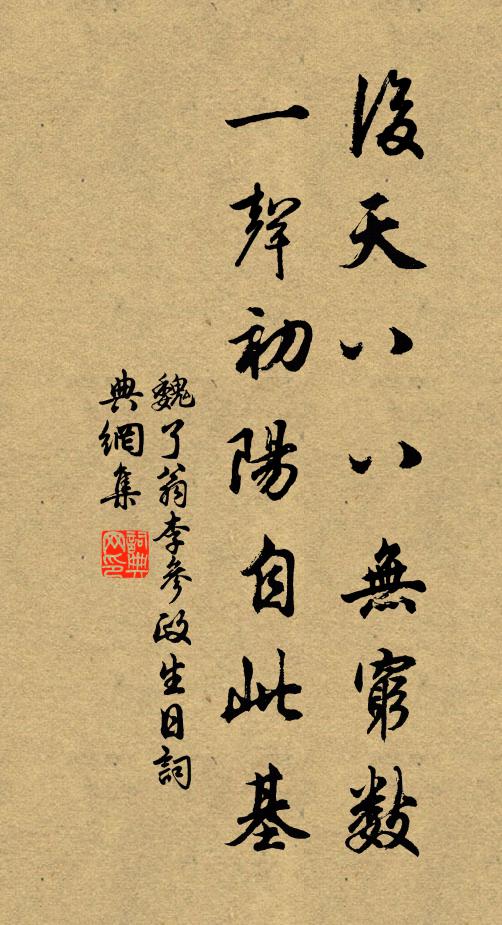 後天八八無窮數
一聲初陽自此基
魏了翁李參政生日詞
典網集
詞典
网印